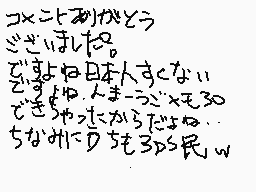 コメントありがとう
ございました。
ですよね日本人すくない
ですよね、んまーうごメモ3D
できちゃったからだよね‥
ちなみにうちも3DS民w